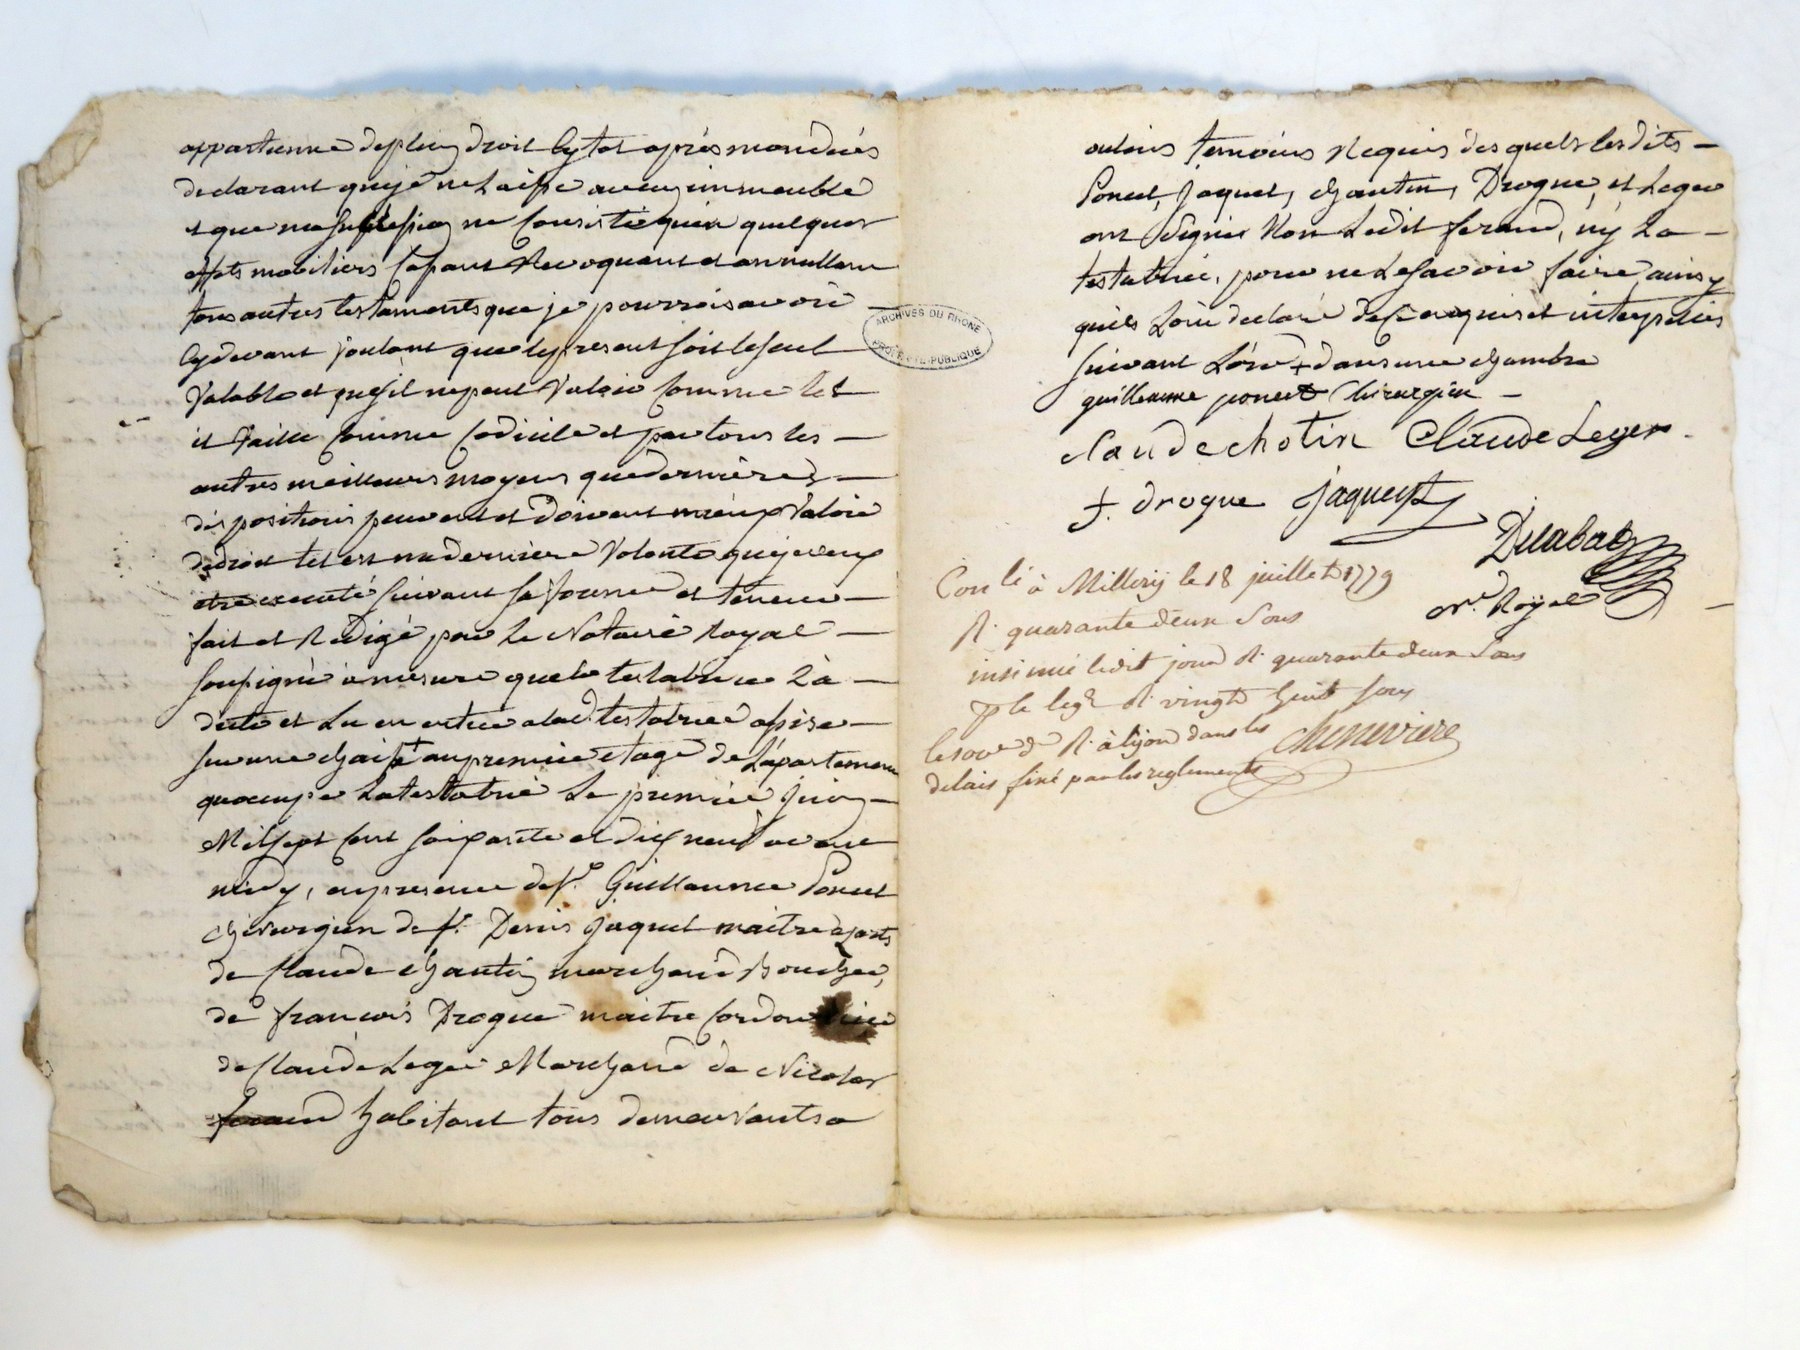 appartienne de plein droit Cytot après mon décès
declarant que je ne Laisse aucun immeuble
et que ma succession ne Consiste qu'en quelques
effets mobiliers Cassant Revoquant et annullant
tous autres testaments que je pourrois avoir
Cydevant voulant que le present soit le seul
Valable et que s'il ne peut Valoir Comme tel
il Vaille Comme Codicile et par tous les —
autres meilleurs moyens que dernieres —
dispositions peuvent et doivent mieux Valoir
de droit tel est ma derniere Volonté que je veux
etre executé suivant sa forme et teneur —
fait et Rédigé par Le Notaire Royal —
soussigné a mesure que la testatrice L'a —
dicté et Lu en entier a lad. testatrice assise —
sur une chaise au premier etage de L'apartement
qu'occupe La testatrice Le premier Juin —
Mil sept cent soixante et dix neuf avant
midy, en presence de sr. Guillaume Poncet
chirurgien de sr. Denis Jaquet maitre
de Claude Chautin marchand Boucher,
de francois Drogue maitre Cordonnier
de Claude Leger Marchand de Nicolas
ferand habitant tous demeurants a
ARCHIVES DU RHONE
PROPRIETE PUBLIQUE
temoins Requis des quels lesdits —
Poncet, Jaquet, Chautin, Drogue, et Leger
ont signés Non Ledit ferand, ny La —
testatrice, pour ne Le savoir faire ainsy
qu'ils L'ont declaré de ce enquis et interpellés
suivant L'ord + dans une chambre
guillaume poncet Chirurgien —
Claude chotin Claude Leger
f. drogue Jaquet
Delabat
nre. Royal
Con lé à Millery le 18 juillet 1779
R. quarante deux Sous
insinué ledit jour R. quarante deux Sous
p le legs R. vingt huit sous
le 100e dr R. à Lyon dans les
delais fixé par les reglements
Chenevriere